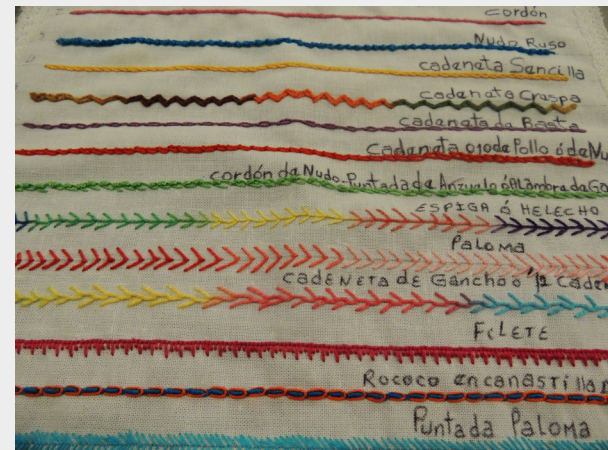 cordón
Nudo Ruso
cadeneta Sencilla
cadeneta Craspa
cadeneta da Basta
Cadeneta ojo de Pollo ó de Nu
cordón de Nudo. Puntada de Anzuelo ó Alambre de Ga
ESPIGA Ó HELECHO
PALOMA
CADENETA DE Gancho o 1/2 Caden
FILETE
Rococo encanastilla
Puntada Paloma